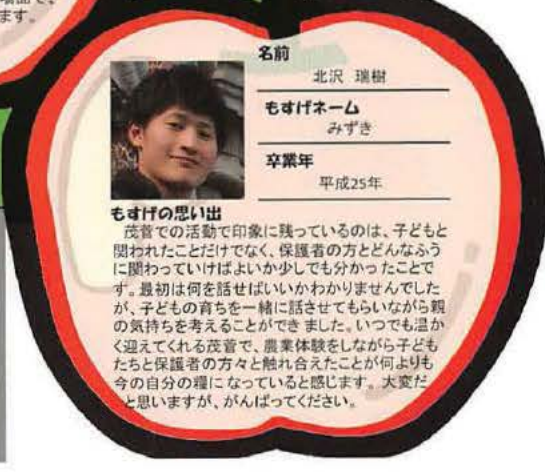 ます。
名前
北沢 瑞樹
もすげネーム
みずき
卒業年
平成25年
もすげの思い出
茂菅での活動で印象に残っているのは、子どもと
関われたことだけでなく、保護者の方とどんなふう
に関わっていけばよいか少しでも分かったことで
す。最初は何を話せばいいかわかりませんでした
が、子どもの育ちを一緒に話させてもらいながら親
の気持ちを考えることができました。いつでも温か
く迎えてくれる茂菅で、農業体験をしながら子ども
たちと保護者の方々と触れ合えたことが何よりも
今の自分の糧になっていると感じます。大変だ
と思いますが、がんばってください。